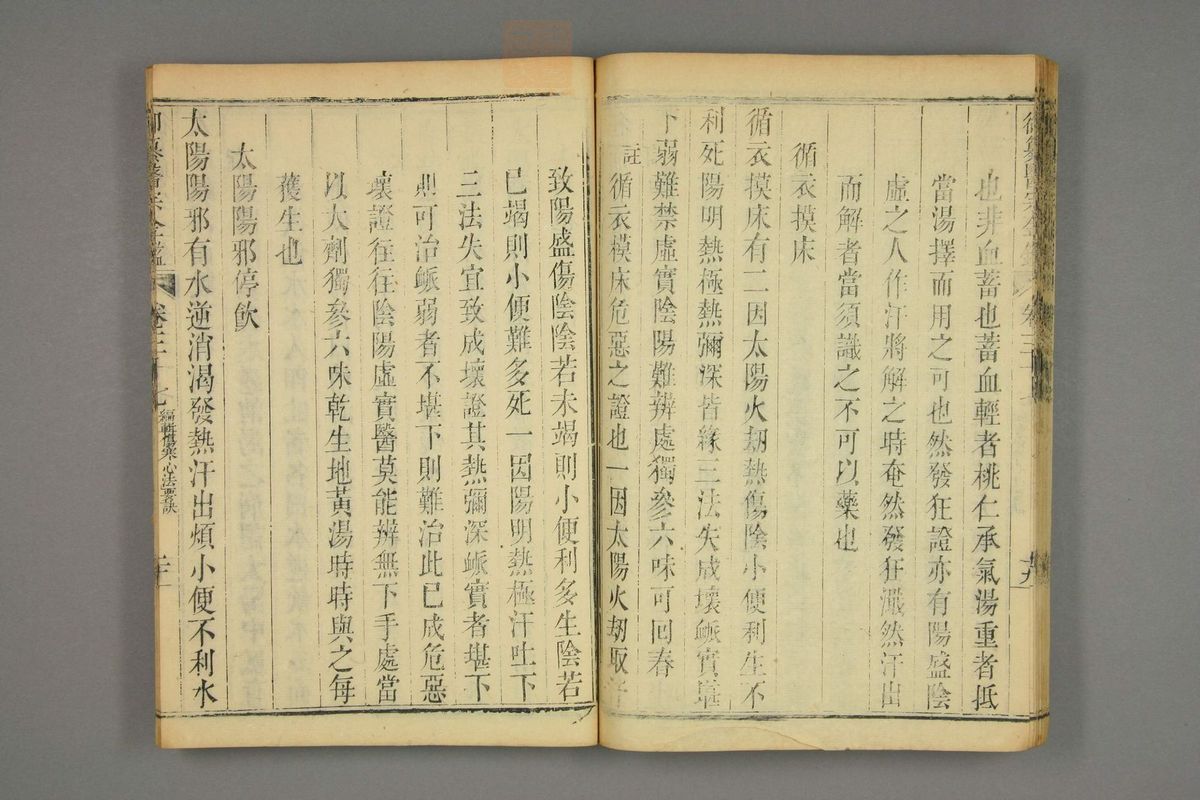 也非血蓄也蓄血輕者桃仁承氣湯重者抵
當湯擇而用之可也然發狂證亦有陽盛陰
虛之人作汗將解之時奄然發狂濈然汗出
而解者當須識之不可以藥也
循衣摸床
循衣摸床有二因太陽火刼熱傷陰小便利生不
利死陽明熱極熱彌深皆緣三法失成壞䘐實堪
下弱難禁虛實陰陽難辨處獨參六味可回春
註循衣摸床危惡之證也一因太陽火刼取汗
致陽盛傷陰陰若未竭則小便利多生陰若
已竭則小便難多死一因陽明熱極汗吐下
三法失宜致成壞證其熱彌深䘐實者堪下
則可治䘐弱者不堪下則難治此已成危惡
壞證往往陰陽虛實醫莫能辨無下手處當
以大劑獨參六味乾生地黃湯時時與之每
獲生也
太陽陽邪停飲
太陽陽邪有水逆消渴發熱汗出煩小便不利水
御纂醫宗金鑑
卷三十七
編輯傷寒心法要訣
二十